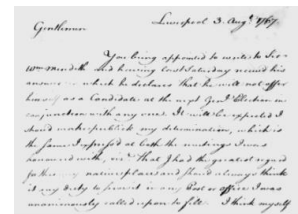 Liverpool 3. Augt. 1767
Gentlemen
You being appointed to write to Sir
Wm. Meredith and having last Saturday received his
answer in which he declares that he will not offer
himself as a Candidate at the next Genl. Election in
conjunction with any one. It will be expected I
should make publick my determination, which is
the same I expressed at both the meetings I was
honoured with, viz. That I had the greatest regard
for the my native place and should always think
it my duty to serve it in any Post or office I was
unanimously called upon to fill. I think myself